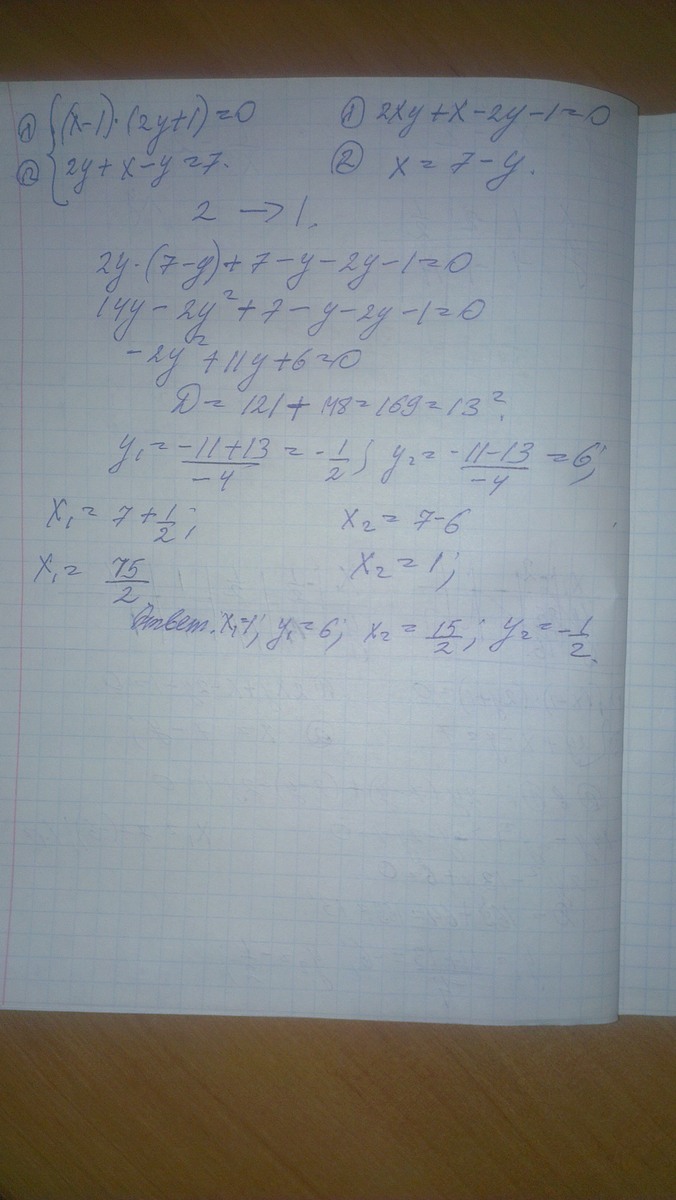 ① {(x-1)·(2y+1)=0 ① 2xy+x-2y-1=0
② {2y+x-y=7. ② x=7-y.
2 → 1.
2y·(7-y)+7-y-2y-1=0
14y-2y²+7-y-2y-1=0
-2y²+11y+6=0
D=121+48=169=13².
y₁=(-11+13)/(-4)=-1/2; y₂=(-11-13)/(-4)=6;
x₁=7+1/2; x₂=7-6
x₁=15/2 x₂=1;
Ответ. x₁=1; y₁=6; x₂=15/2; y₂=-1/2.